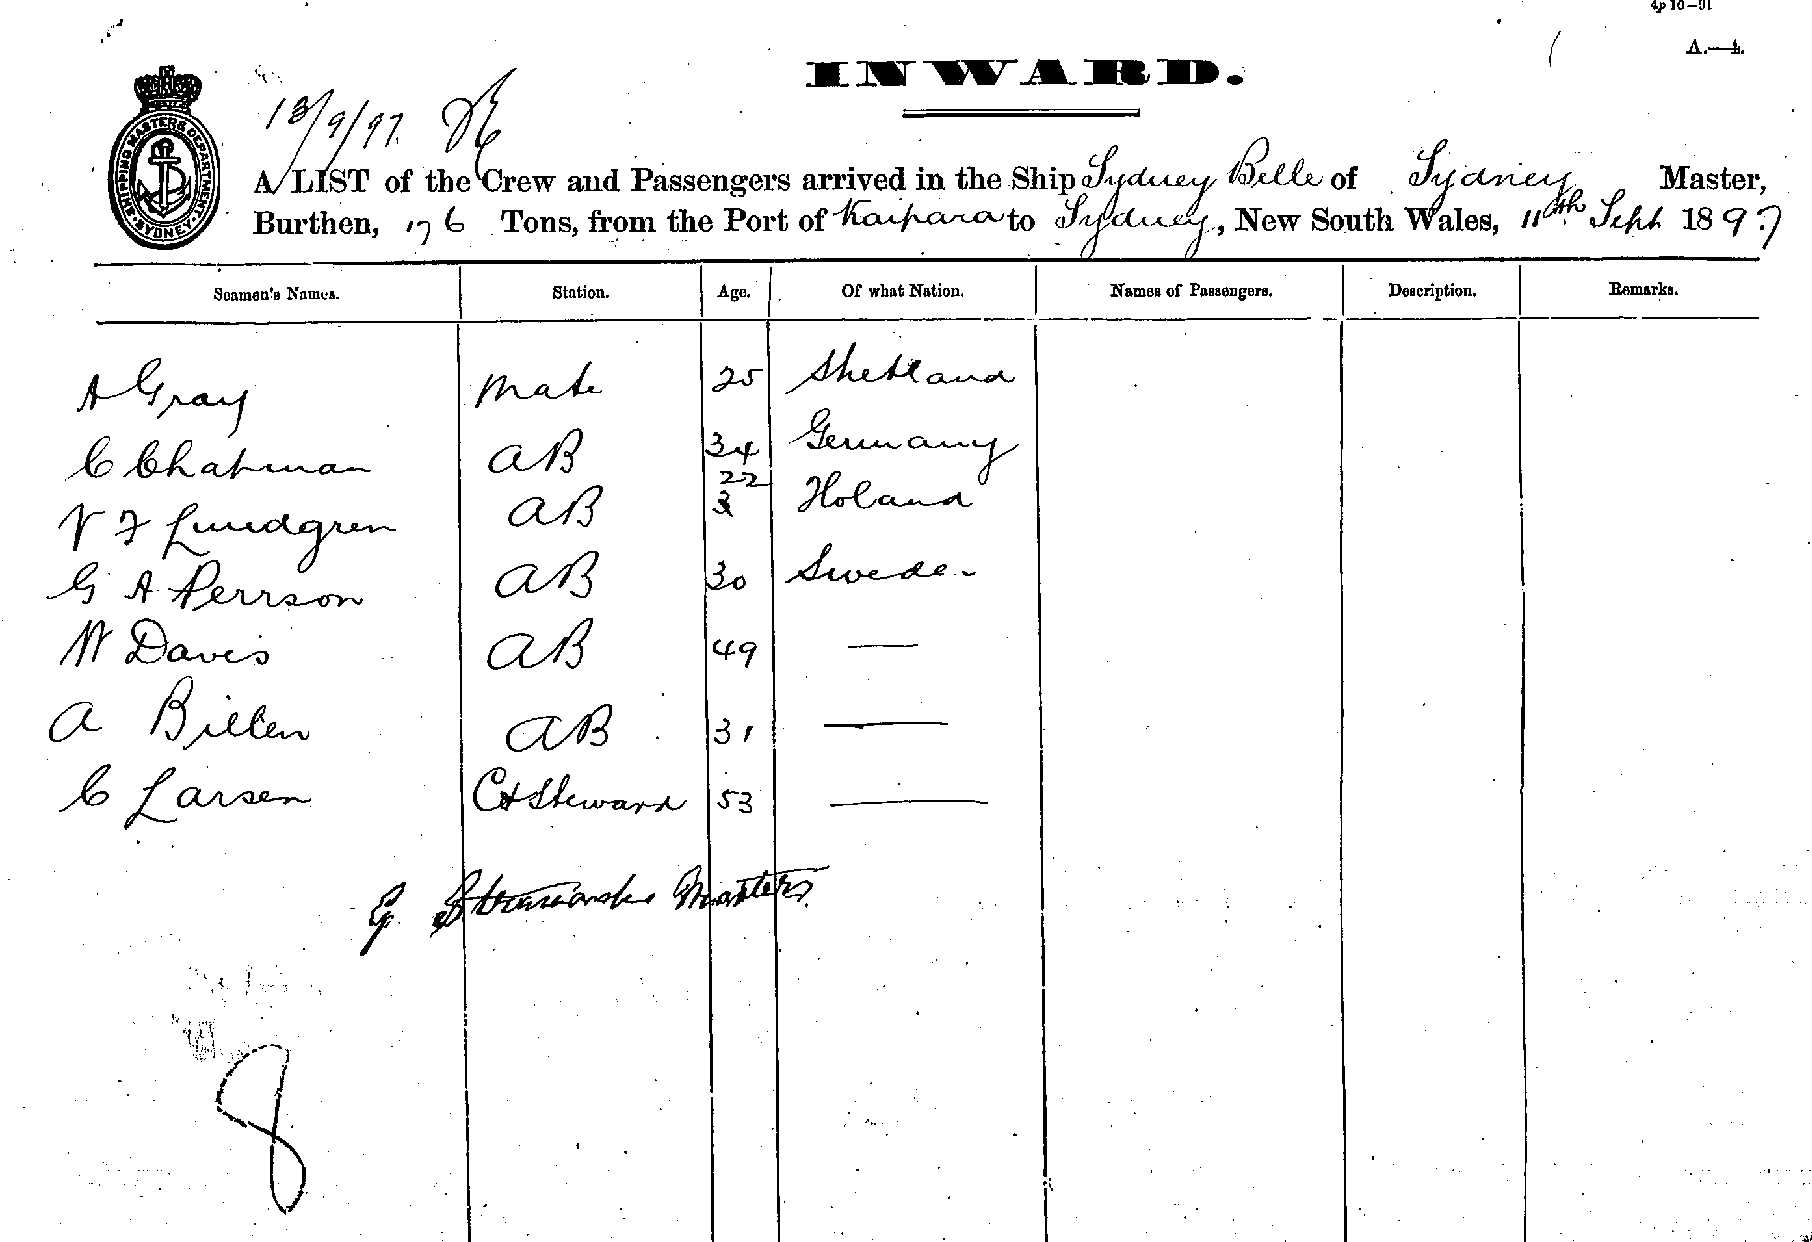 4p 10–91
A.—4.
INWARD.
SHIPPING MASTERS DEPARTMENT. SYDNEY.
13/9/97.
A LIST of the Crew and Passengers arrived in the Ship Sydney Belle of Sydney Master,
Burthen, 176 Tons, from the Port of Kaipara to Sydney, New South Wales, 11th Sept 1897
Seamen's Names. Station. Age. Of what Nation. Names of Passengers. Description. Remarks.
A Gray Mate 25 Shetland
C Chapman AB 34 Germany
V F Lundgren AB 22 Holand
G A Perrson AB 30 Swede
W Davis AB 49 —
A Billen AB 31 —
C Larsen C & Steward 53 —
G Master
8